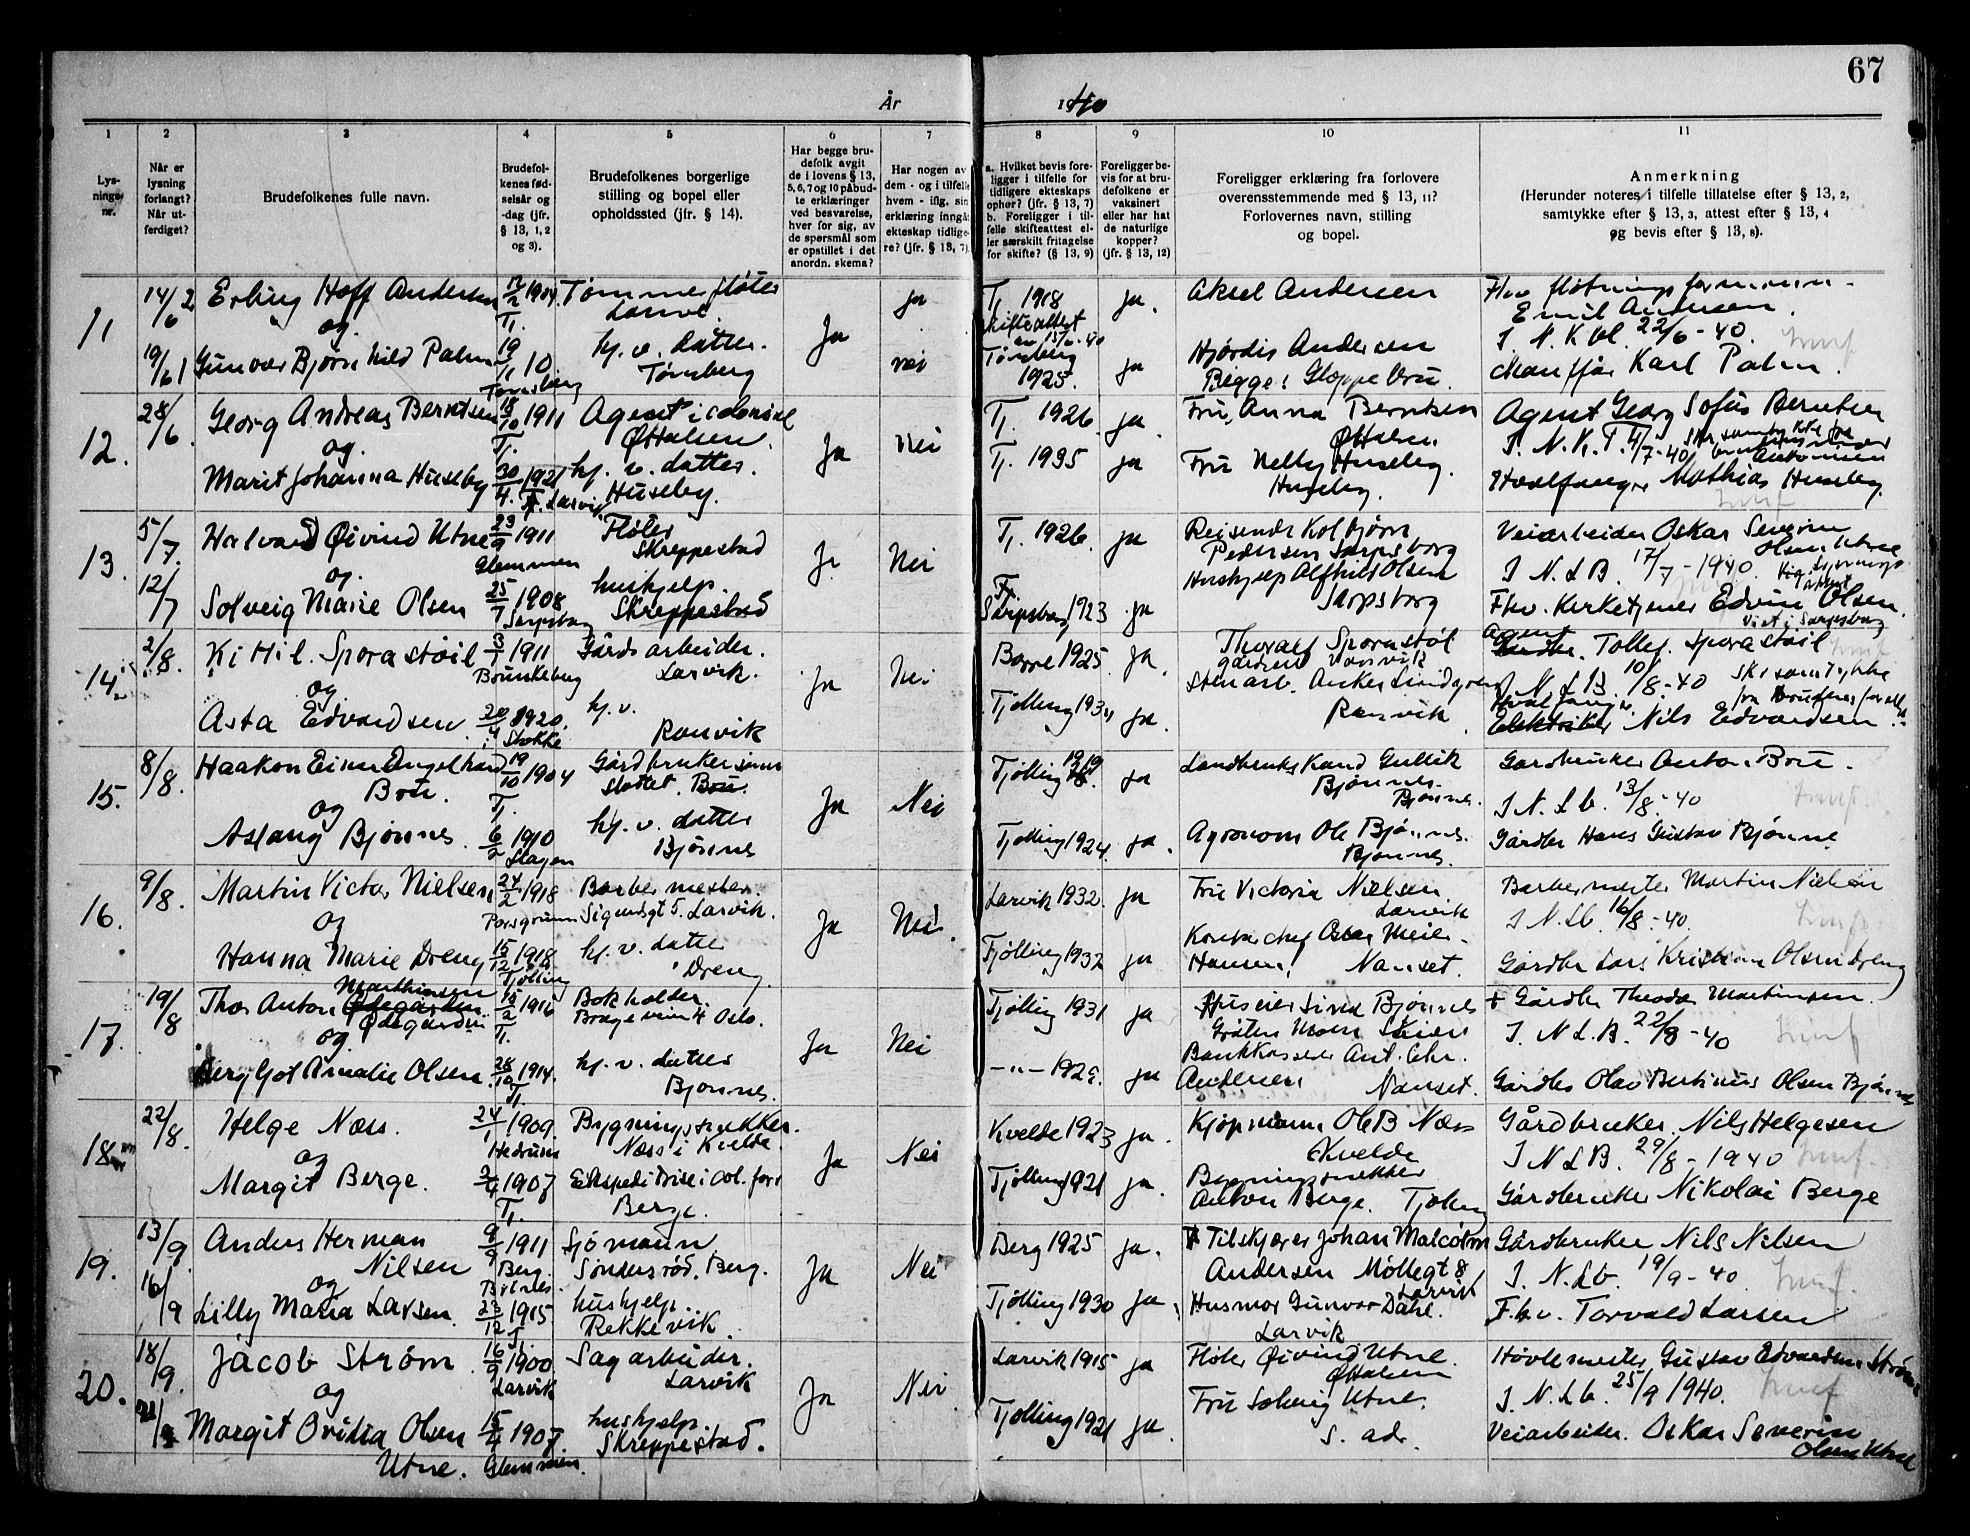 67
År 1940
1 2 3 4 5 6 7 8 9 10 11
Lysnings nr.
Når er lysning forlangt? Når utferdiget?
Brudefolkenes fulle navn.
Brudefolkenes fødselsår og -dag (jfr. § 13, 1, 2 og 3).
Brudefolkenes borgerlige stilling og bopel eller opholdssted (jfr. § 14).
Har begge brudefolk avgit de i lovens § 13, 5, 6, 7 og 10 påbudte erklæringer ved besvarelse, hver for sig, av de spørsmål som er opstillet i det anordn. skema?
Har nogen av dem - og i tilfelle hvem - iflg. sin erklæring inngått ekteskap tidligere? (jfr. § 13, 7).
a. Hvilket bevis foreligger i tilfelle for tidligere ekteskaps ophør? (jfr. § 13, 7)
b. Foreligger i tilfelle skifteattest eller særskilt fritagelse for skifte? (§ 13, 9)
Foreligger bevis for at brudefolkene er vaksinert eller har hat de naturlige kopper? (jfr. § 13, 12)
Foreligger erklæring fra forlovere overensstemmende med § 13, 11? Forlovernes navn, stilling og bopel.
Anmerkning
(Herunder noteres i tilfelle tillatelse efter § 13, 2, samtykke efter § 13, 3, attest efter § 13, 4 og bevis efter § 13, 8).
11 14/6 Erling Hoff Andersen 1904 Tj. Tømmerfløter Ja ja Tj. 1918 ja. Aksel Andersen Fhv. fløtningsformann
Skifteattest Emil Andersen.
og I. N. K bl. 22/6-40.
19/6 Gunvor Bjørnhild Palm 19/1 10 Tønsberg hj. v. datter. Tønsberg nei Tønsberg 1925. ja Hjørdis Andersen Begge: Gloppe Bru. Karl Palm.
12. 28/6. Georg Andreas Berntsen 18/10 1911 Tj. Agent i colonial Ja Nei Tj. 1926. ja. Fru Anna Berntsen Agent Georg Sofus Berntsen
og I. N. K. T. 4/7-40
Marit Johanna Huseby 30/4. 1921 Larvik hj. v. datter. Huseby. Tj. 1935 ja Fru Nelly Huseby. Huseby. Hvalfanger Mathias Huseby.
13. 5/7. Halvard Øivind Utne 23/9 1911 Glemmen Fløter Skreppestad Ja Nei Tj. 1926. ja Reisende Kolbjørn Pedersen Sarpsborg Veiarbeider Oskar Severin Olsen Utne
og I N. L B. 17/7-1940.
12/7 Solveig Marie Olsen 25/7 1908 Sarpsborg hushjelp. Skreppestad Sarpsborg 1923 ja Hushjelp Alfhild Olsen Sarpsborg Fhv. Kirketjener Edvin Olsen. Viet i Sarpsborg
14. 2/8. Kittil Sporastøil 3/1 1911 Brunkeberg Gårdsarbeider. Larvik. Ja Nei Borre 1925. ja. Thoralf Sporastøl Agent Tollef Sporastøil
og I N L B. 10/8.-40
Asta Edvardsen. 20/4 1920. Stokke hj. v. Ranvik Tjølling 1934 ja. Stenarb. Anker Lindgren Ranvik Hvalfanger Nils Edvardsen
15. 8/8. Haakon Einar Engelhard Bou. 19/10 1904 Tj. Gårdbruker Bou. Ja Nei Tjølling 1919 ja Landbrukskand Gullik Bjønnes. Bjønnes. Gårdbruker Anton Bou.
og I N. L b. 13/8-40
Aslaug Bjønnes. 6/2 1910 Slagen hj. v. datter Bjønnes Tjølling 1924. ja. Agronom Ole Bjønnes. Bjønnes. Gårdbr Hans Gustav Bjønne
16. 9/8. Martin Victor Nielsen 24/2 1918 Porsgrunn Barbermester. Sigurdsgt 5. Larvik. Ja Nei. Larvik 1932. ja Fru Victoria Nielsen Larvik Barbermester Martin Nielsen
og I N. Lb. 16/8.-40.
Hanna Marie Dreng 15/12 1918. Tjølling hj. v. datter Dreng Tjølling 1932 ja Kontorchef Oscar Meier-Hansen, Nanset. Gårdbr Lars Kristian Olsen Dreng
17. 19/8 Thor Anton Marthinsen Ødegården 15/2 1916 Tj. Bokholder. Bragevein 4 Oslo. Ja Nei Tjølling 1931 ja Bjønnes + Gårdbr Theodor Martinsen.
og I. N L. B. 22/8-40
Bergljot Amalie Olsen. 28/10 1914. Tj. hj. v. datter Bjønnes. -"- 1929. ja Bankkasserer Ant. Chr. Andersen Nanset. Gårdbr Olav Bertinius Olsen Bjønnes
18 22/8. Helge Næss. 24/1 1909. Hedrum Bygningssnekker. Næss i Kvelde. Ja Nei Kvelde 1923 ja. Kjøpmann Ole B Næss Kvelde Gårdbruker Nils Helgesen
og I N L B. 29/8-1940
Margit Berge. 1907 Tj. Ekspeditrise i col. forr. Berge. Tjølling 1921 ja. Bygningssnekker Anton Berge. Tjølling Gårdbruker Nikolai Berge
19. 13/9. Anders Herman Nilsen 9/9 1911 Berg. Sjømann Søndersrød. Berg. Ja Nei Berg 1925 ja. Tilskjærer Johan Malcolm Andersen Møllegt 8 Larvik Gårdbruker Nils Nilsen
og I. N. Lb. 19/9-40
16/9 Lilly Maria Larsen. 23/12 1915 hushjelp. Rekkevik. Tjølling 1930 ja Husmor Gunvor Dahl. Larvik Fhv. Torvald Larsen
20. 18/9. Jacob Strøm 16/9 1900 Larvik Sagarbeider. Larvik Ja Nei Larvik 1915 ja Fløter Øivind Utne. Høvlemester Gustav Edvardsen Strøm
og I. N. Lb. 25/9 1940.
Margit Ovidia Olsen Utne. 15/4 1907. Glemmen hushjelp. Skreppestad. Tjølling 1921 ja. Fru Solveig Utne. S. adr. Veiarbeider. Oskar Severin Olsen Utne